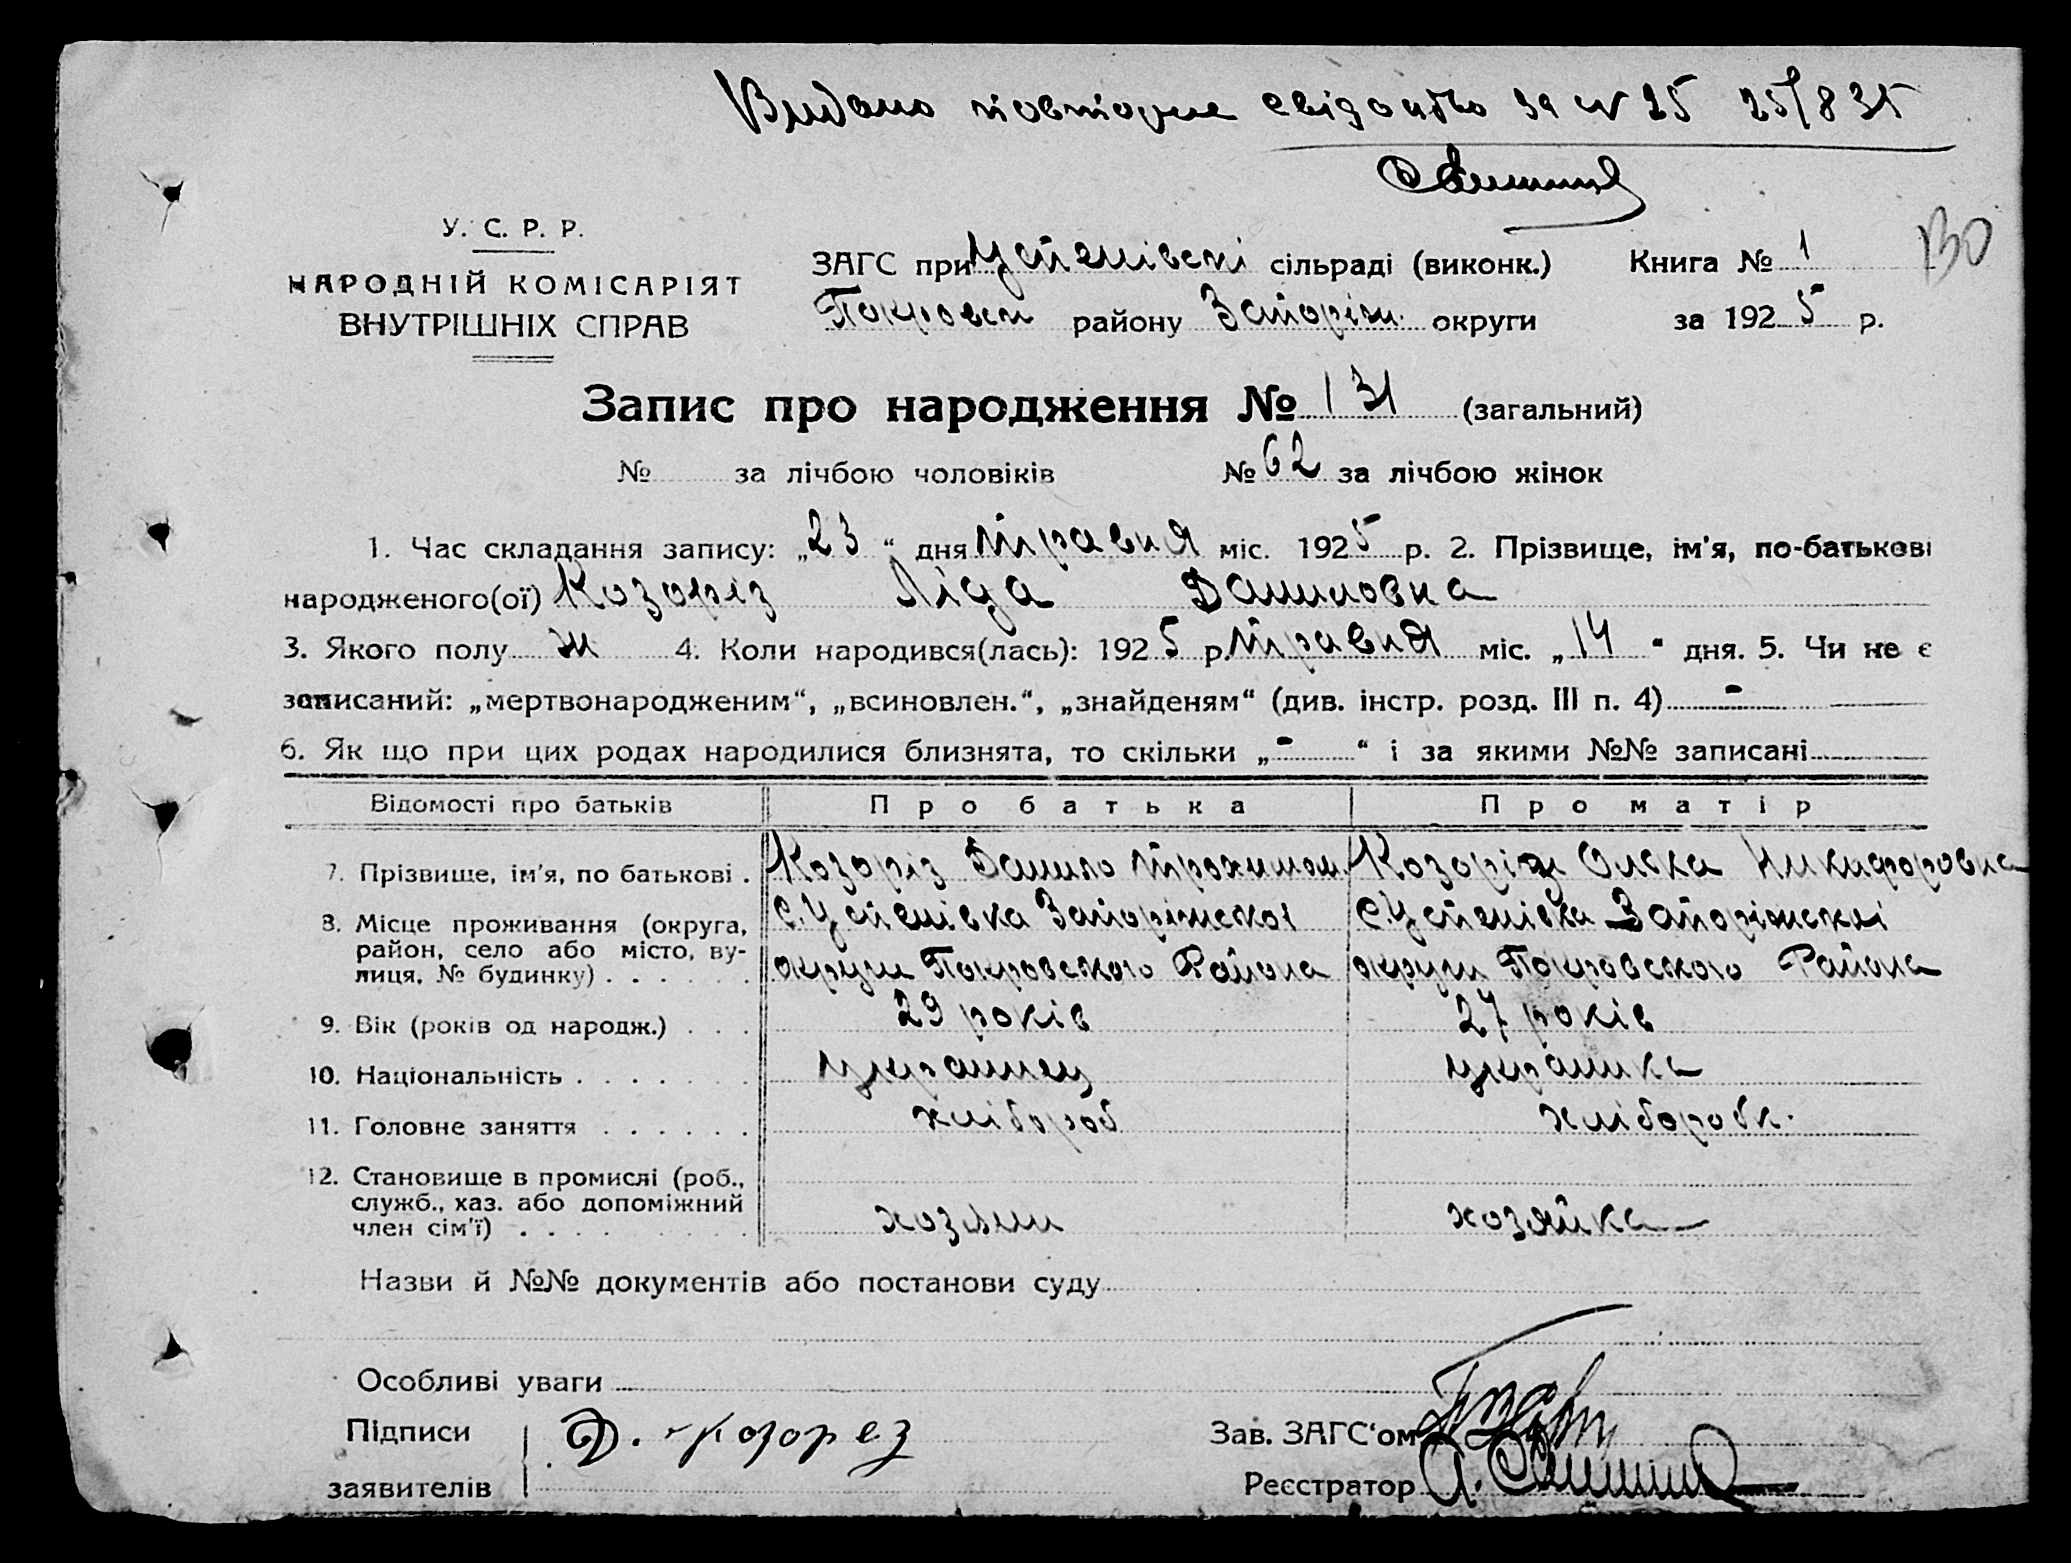 Видано повторне свідоцтво за № 25 25/8 35
130
У. С. Р. Р.
НАРОДНІЙ КОМІСАРІЯТ
ВНУТРІШНІХ СПРАВ
ЗАГС при Успенівскі сільраді (виконк.) Книга № 1
Покровск району Запоріж. округи за 1925 р.
Запис про народження № 131 (загальний)
№ за лічбою чоловіків № 62 за лічбою жінок
1. Час складання запису: „23“ дня травня міс. 1925 р. 2. Прізвище, ім'я, по-батькові
народженого(ої) Козоріз Ліда Даниловна
3. Якого полу ж 4. Коли народився(лась): 1925 р. травня міс. „14“ дня. 5. Чи не є
записаний: „мертвонародженим“, „всиновлен.“, „знайденям“ (див. інстр. розд. III п. 4) -
6. Як що при цих родах народилися близнята, то скільки „-“ і за якими №№ записані
Відомості про батьків Про батька Про матір
7. Прізвище, ім'я, по батькові . Козоріз Данило Трохимов. Козоріз Олска Никифоровна
8. Місце проживання (округа, район, село або місто, вулиця, № будинку) . . . . . . с. Успенівка Запоріжскої с. Успенівка Запоріжскої
округи Покровского Района округи Покровского Района
9. Вік (років од народж.) . . . 29 років 27 років
10. Національність . . . . . . . украинец украинка
11. Головне заняття . . . . . . хлібороб хліборобк.
12. Становище в промислі (роб., служб., хаз. або допоміжний член сім'ї) . . . . . . . . . хозяин хозяйка
Назви й №№ документів або постанови суду
Особливі уваги
Підписи Д. Козорез Зав. ЗАГС'ом
заявителів Реєстратор